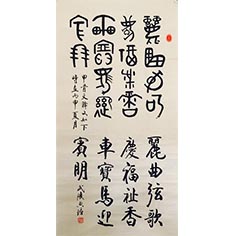 麗曲弦歌
慶福祉香
車寶馬迎
賓朋
甲骨文釋文如下
時在丙申夏月
麗曲弦歌
慶福祉香
車寶馬迎
賓朋